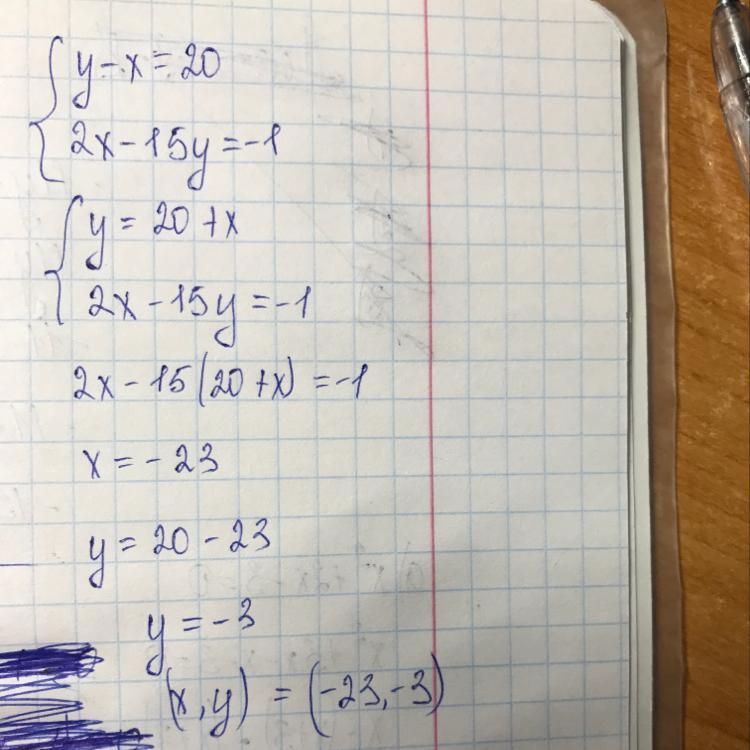 y - x = 20
2x - 15y = -1
y = 20 + x
2x - 15y = -1
2x - 15(20 + x) = -1
x = -23
y = 20 - 23
y = -3
(x, y) = (-23, -3)